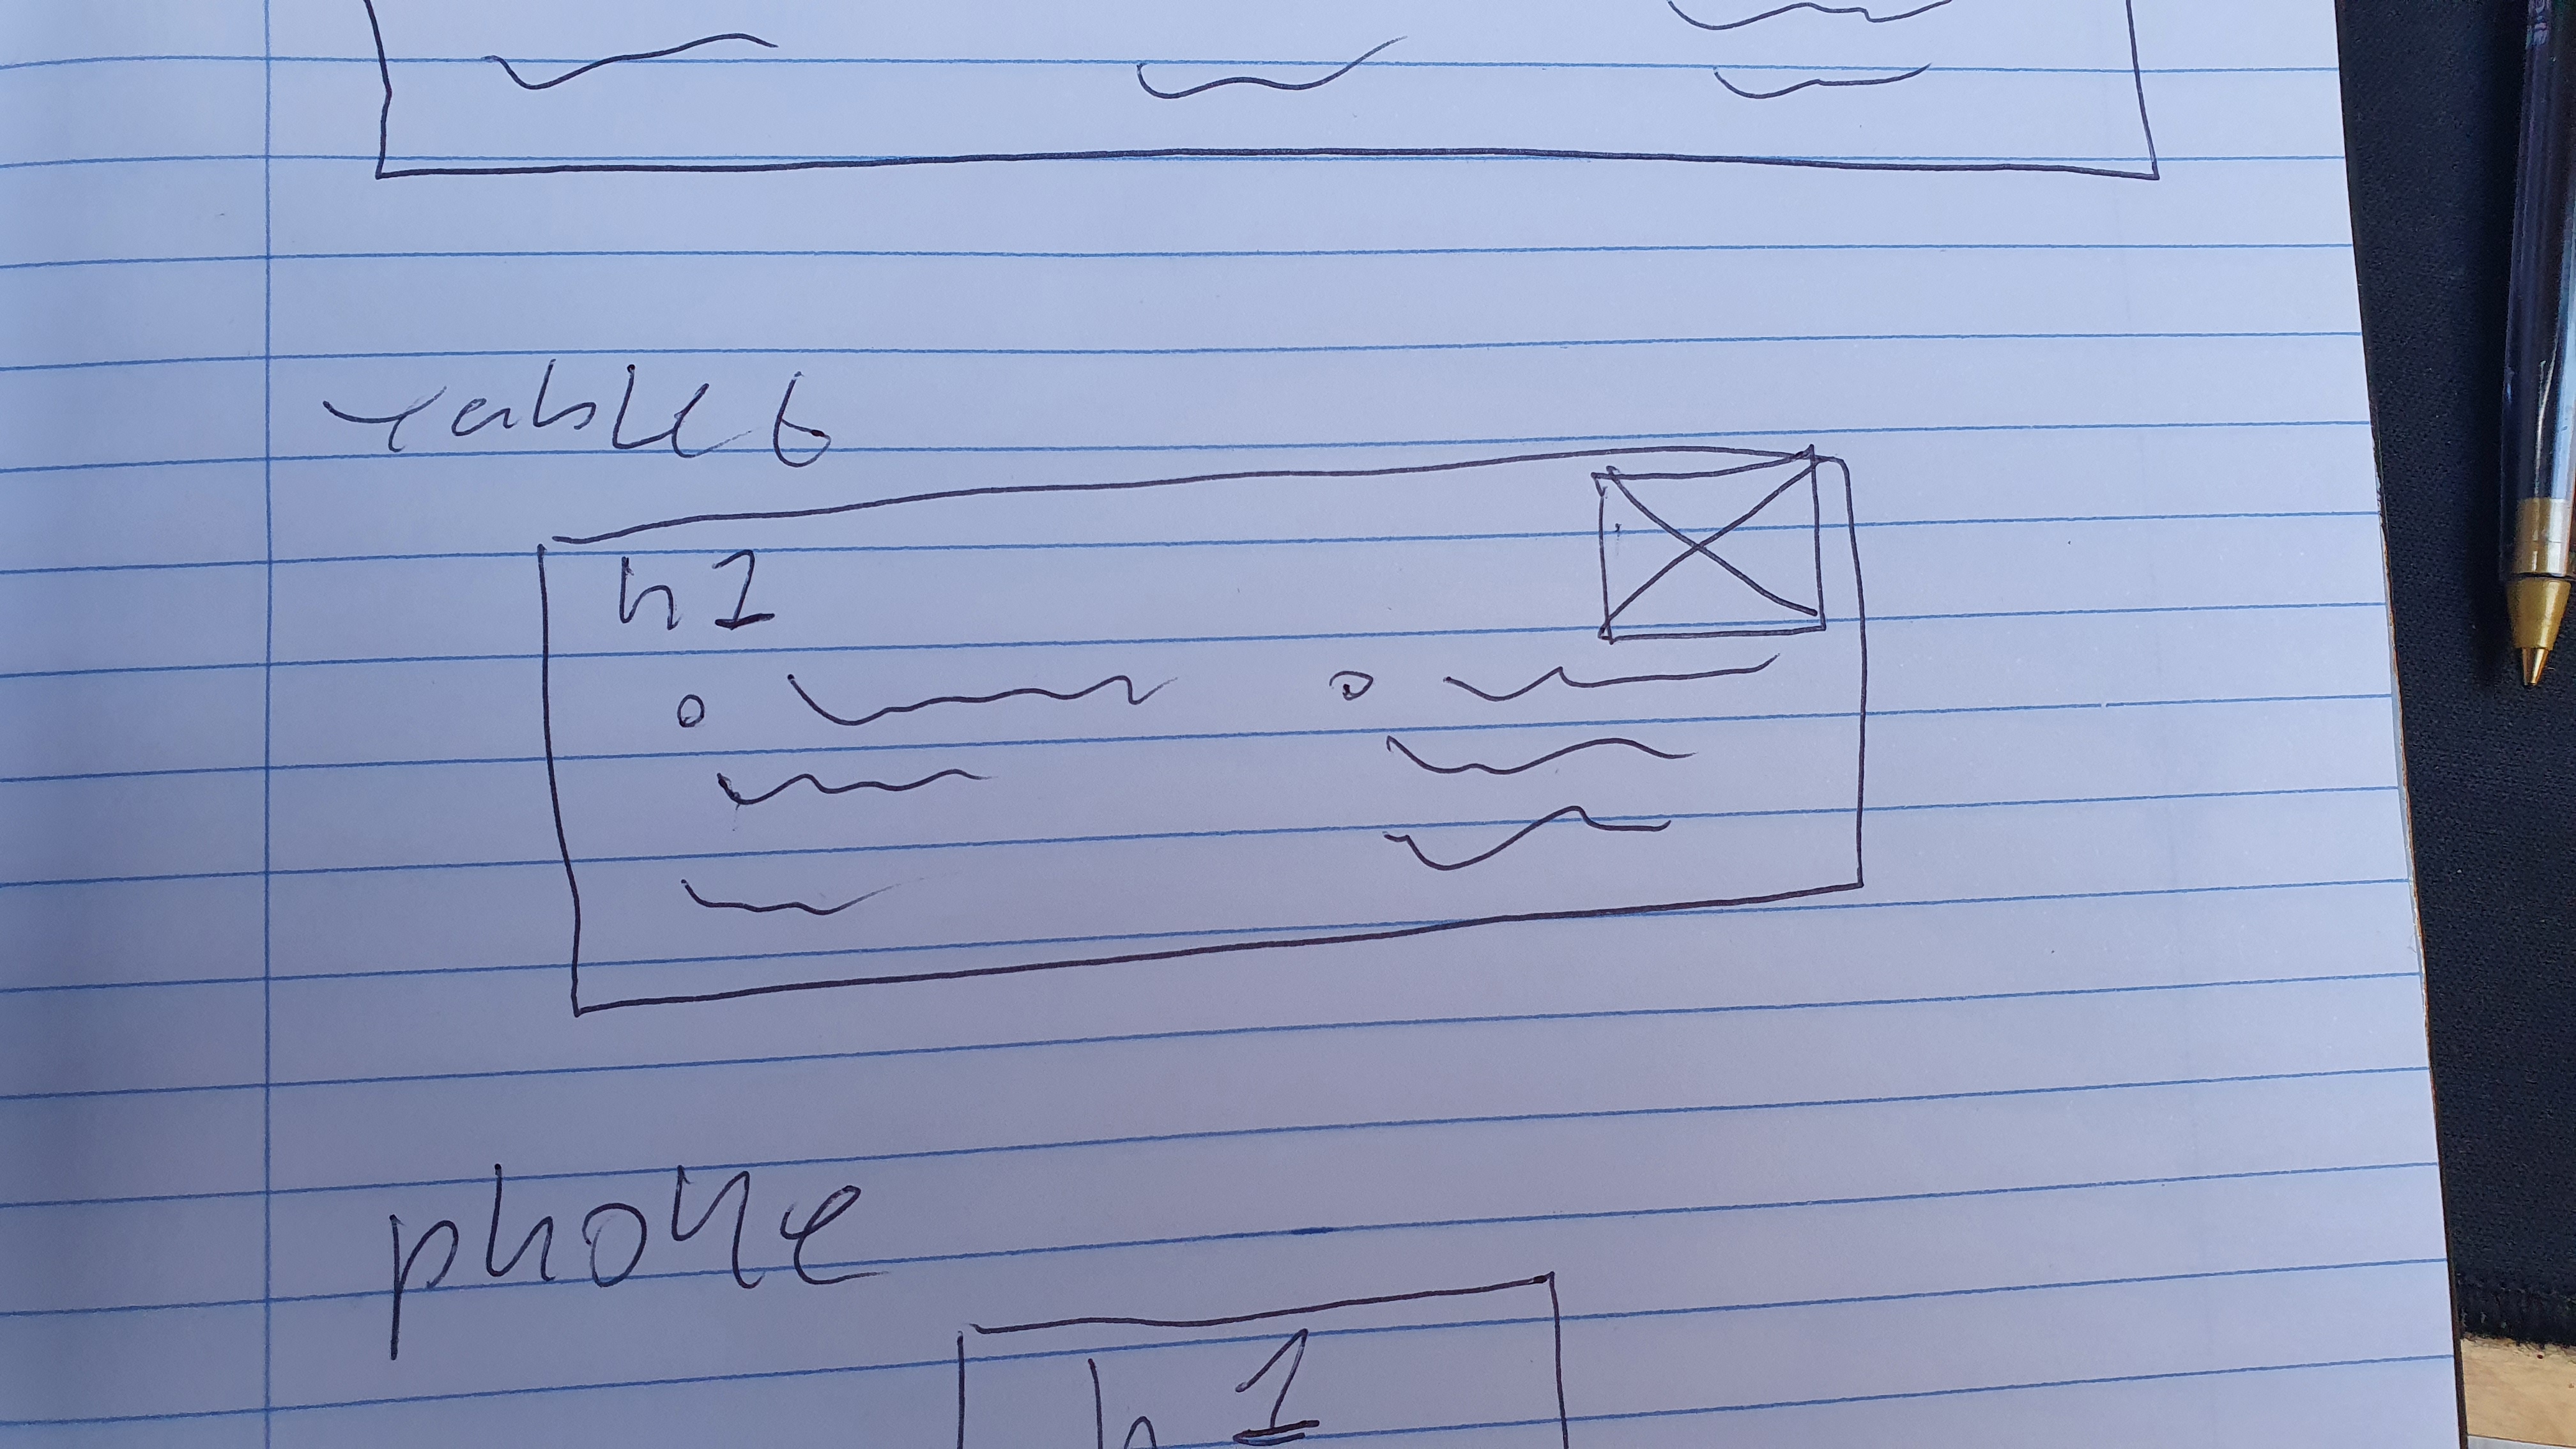 Tablet
h1
phone
h1